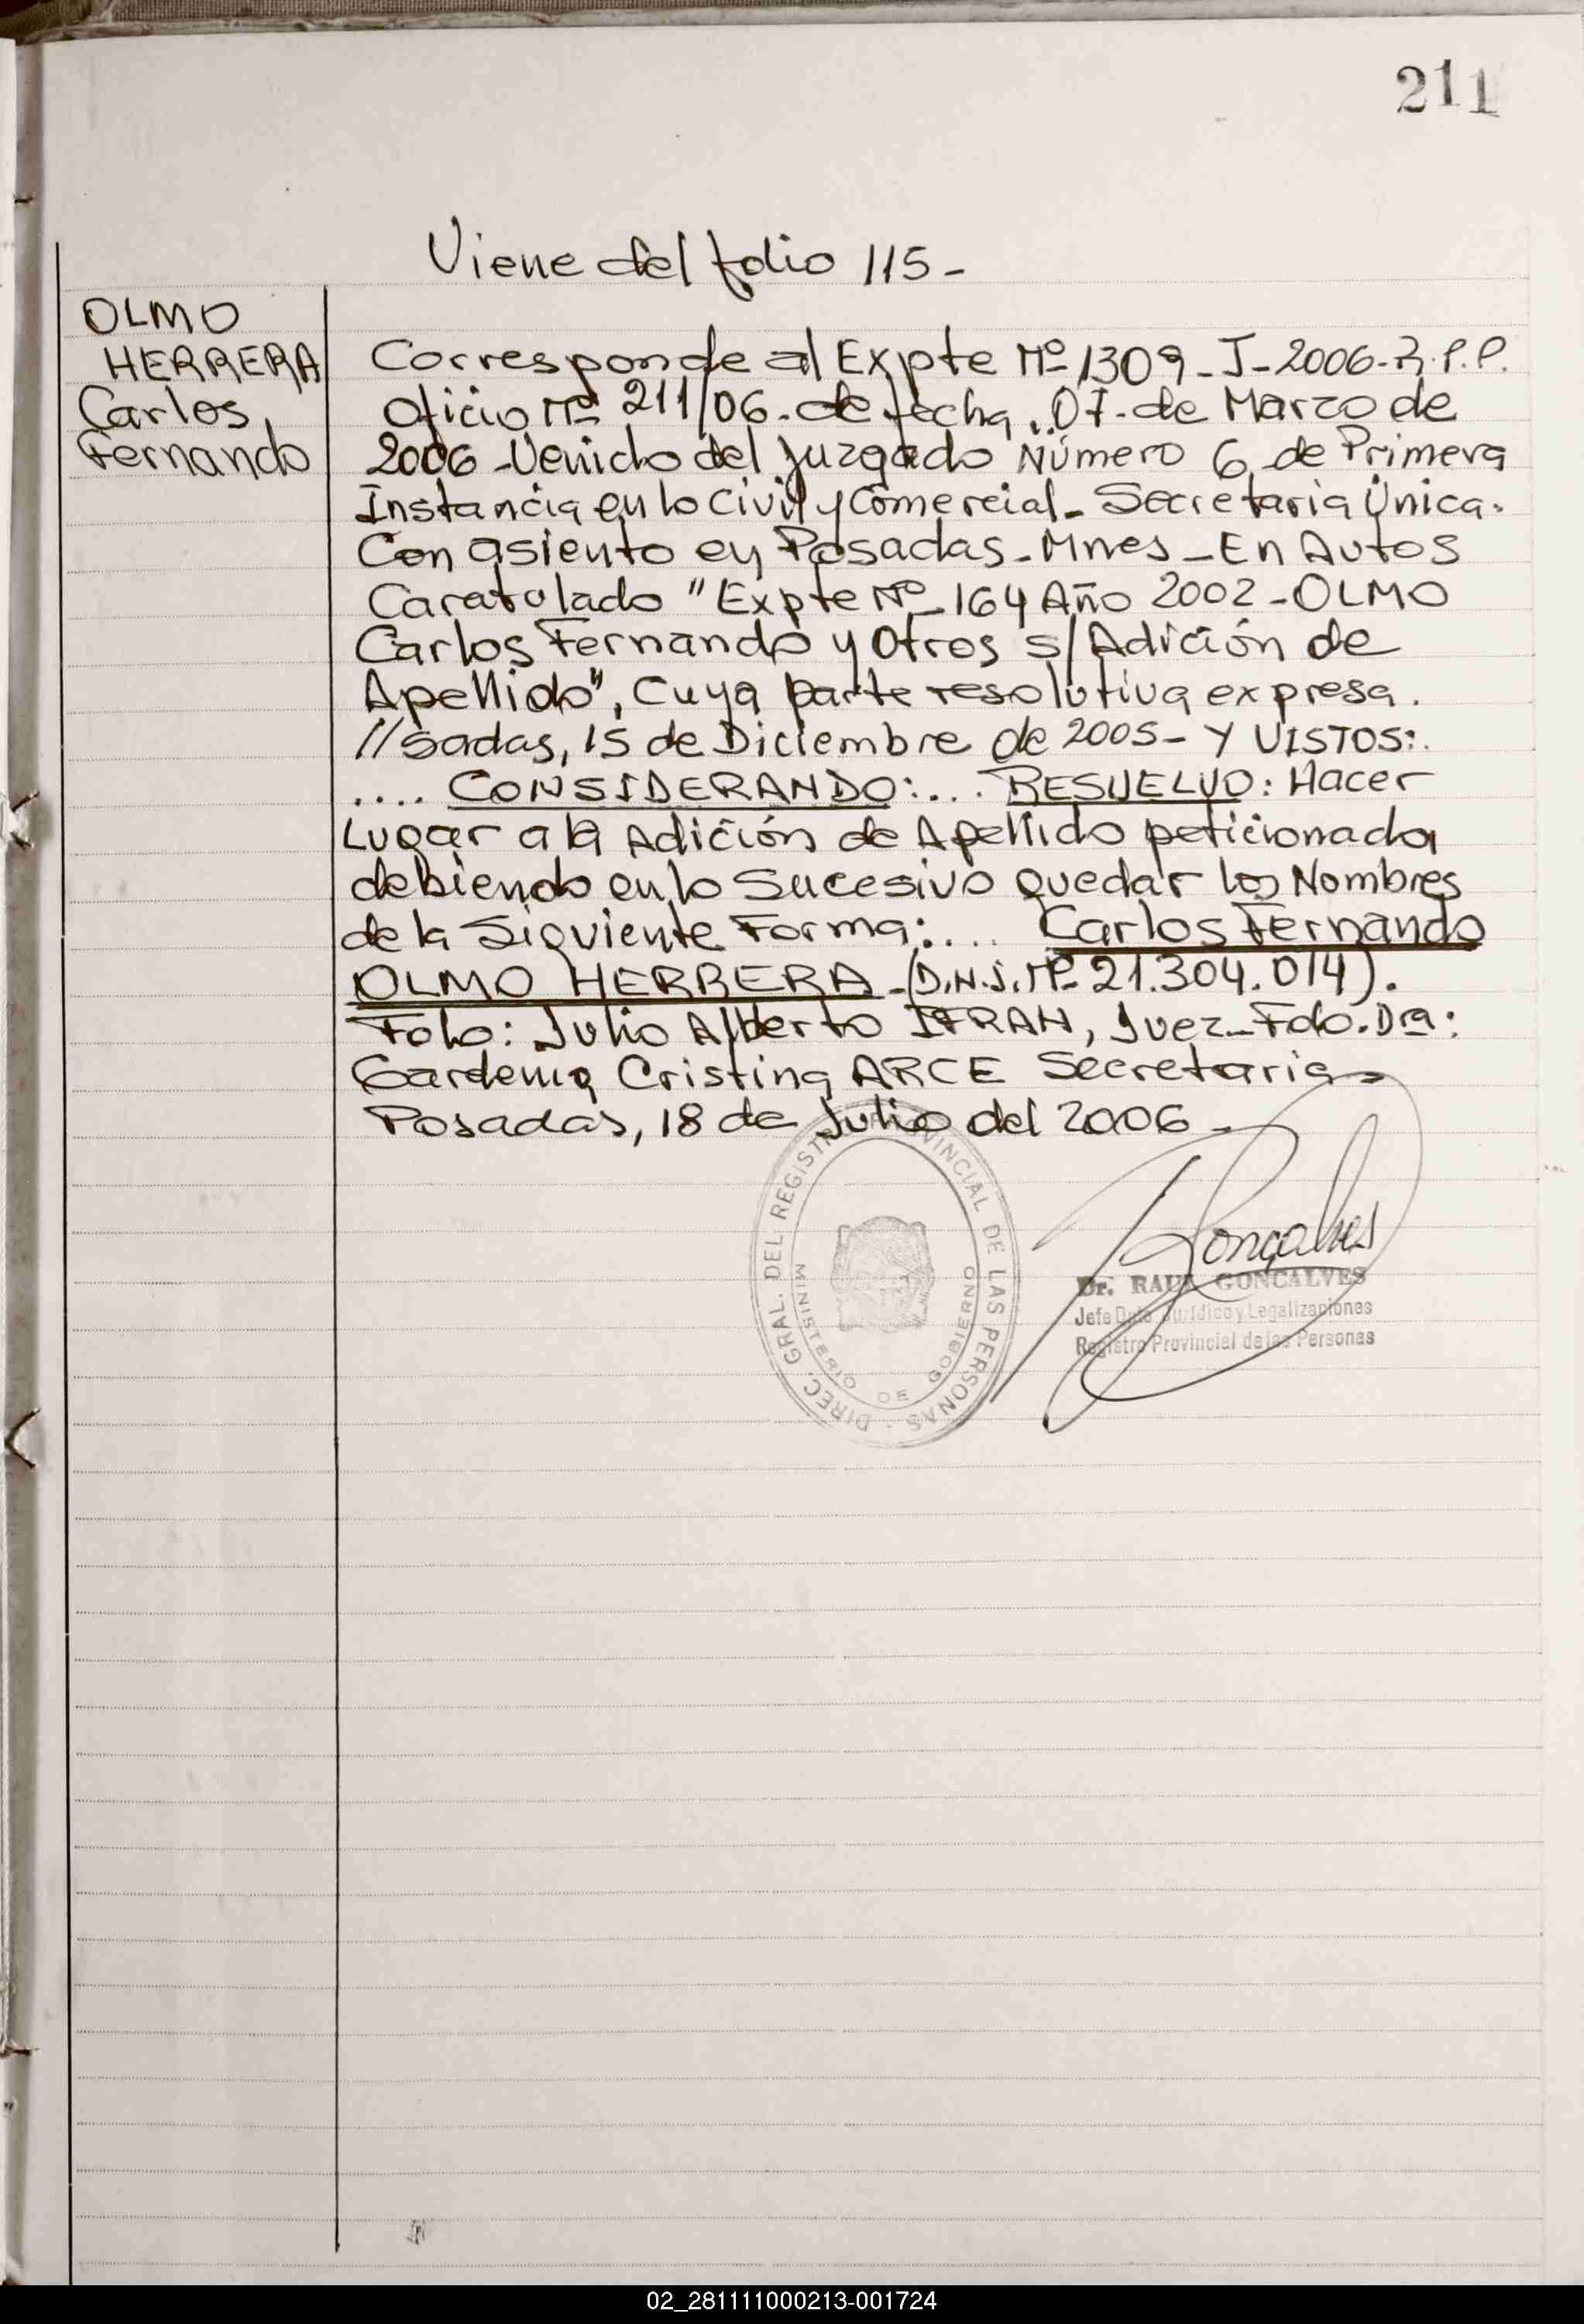 211
Viene del folio 115-
OLMO
HERRERA
Carlos
Fernando
Corresponde al Expte Nº 1309-J-2006-R.P.P.
Oficio Nº 211/06.-de fecha, 07.-de Marzo de
2006-Venido del Juzgado Número 6 de Primera
Instancia en lo Civil y Comercial- Secretaria Única.
Con asiento en Posadas-Mnes-En Autos
Caratulado "Expte Nº-164 Año 2002-OLMO
Carlos Fernando y Otros s/Adición de
Apellido", Cuya parte resolutiva expresa.
//sadas, 15 de Diciembre de 2005- Y VISTOS:.
.... CONSIDERANDO:... RESUELVO: Hacer
Lugar a la Adición de Apellido peticionada
debiendo en lo Sucesivo quedar los Nombres
de la Siguiente Forma:.... Carlos Fernando
OLMO HERRERA-(D.N.I. Nº-21.304.014).
Fdo: Julio Alberto IFRAN, Juez-Fdo. Dra:
Gardenia Cristina ARCE Secretaria-
Posadas, 18 de Julio del 2006-
DIREC. GRAL. DEL REGISTRO PROVINCIAL DE LAS PERSONAS
MINISTERIO DE GOBIERNO
Gonçalves
Dr. RAUL GONCALVES
Jefe Dpto. Jurídico y Legalizaciones
Registro Provincial de las Personas
02_281111000213-001724